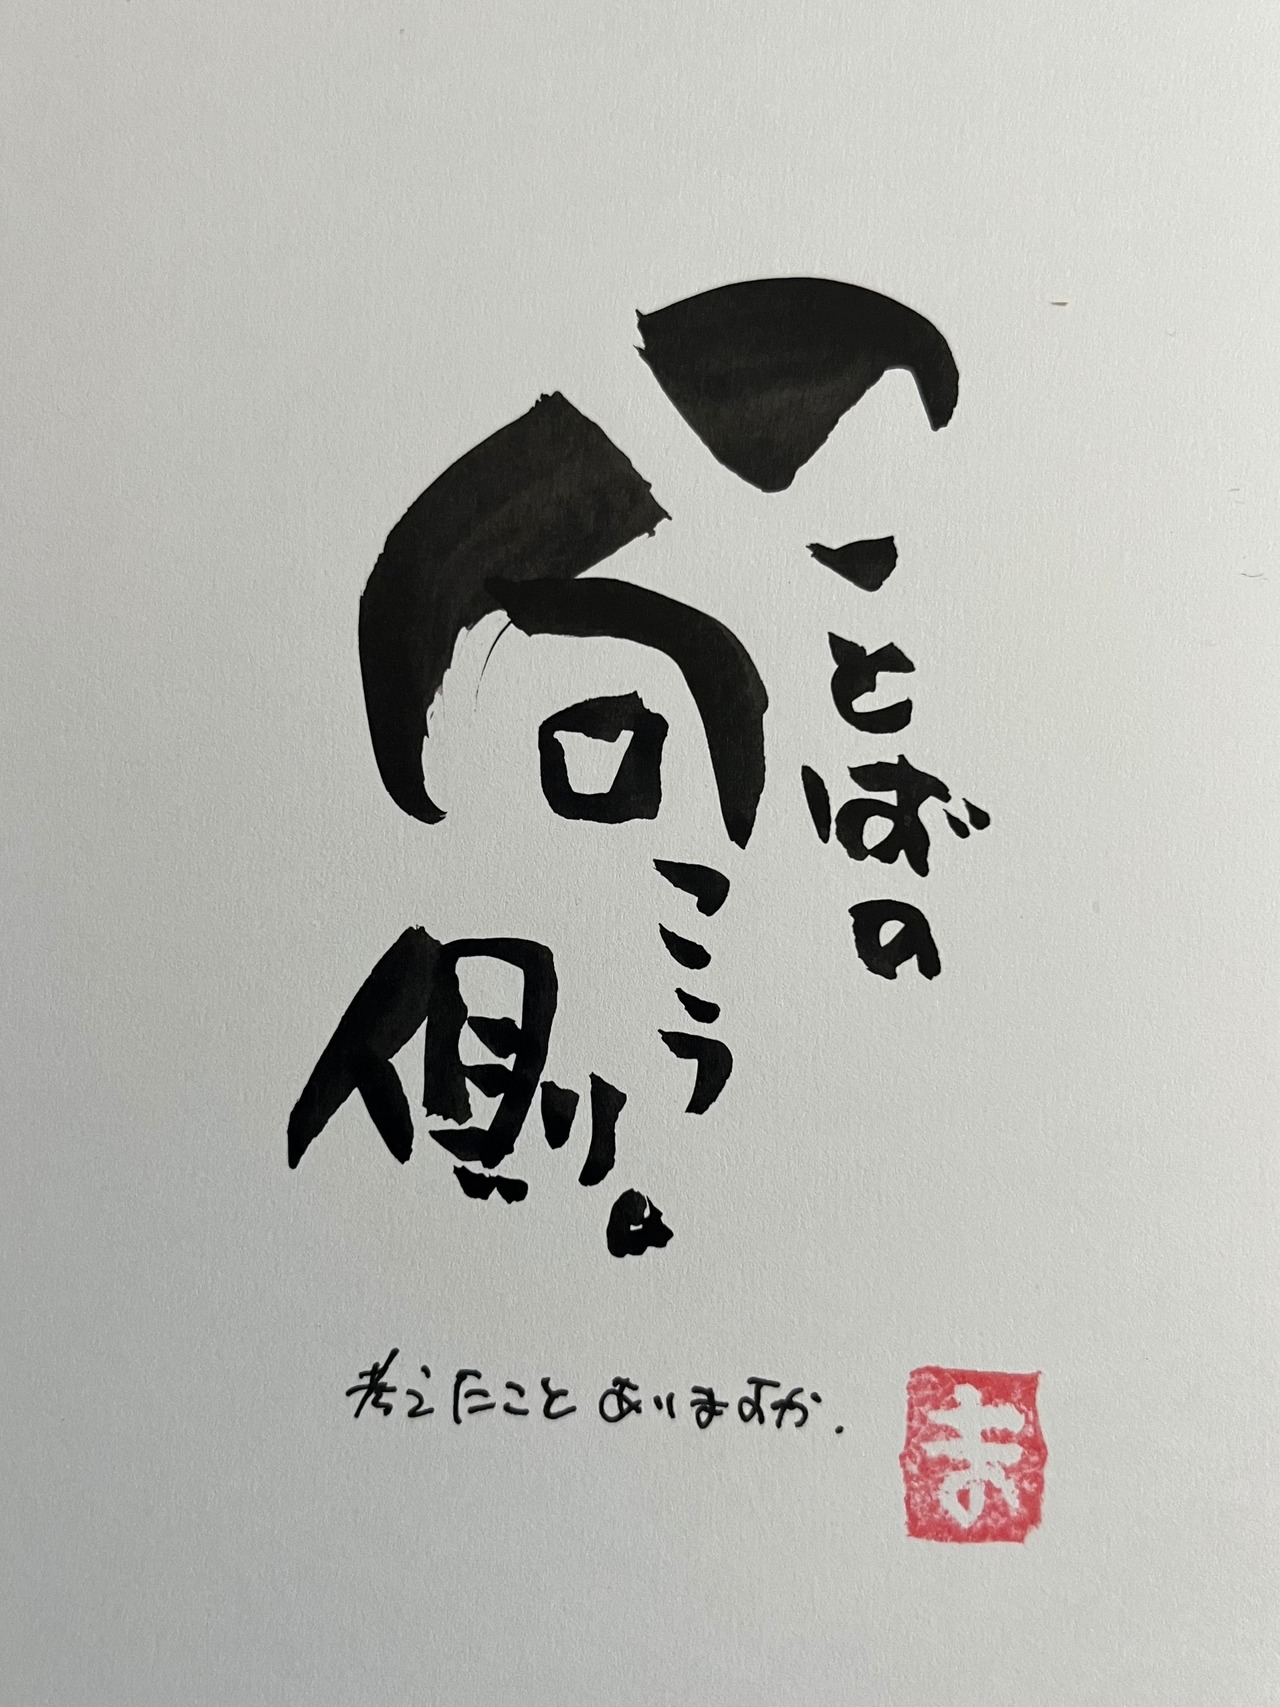 ことばの
向こう
側。
考えたことありますか.
ま